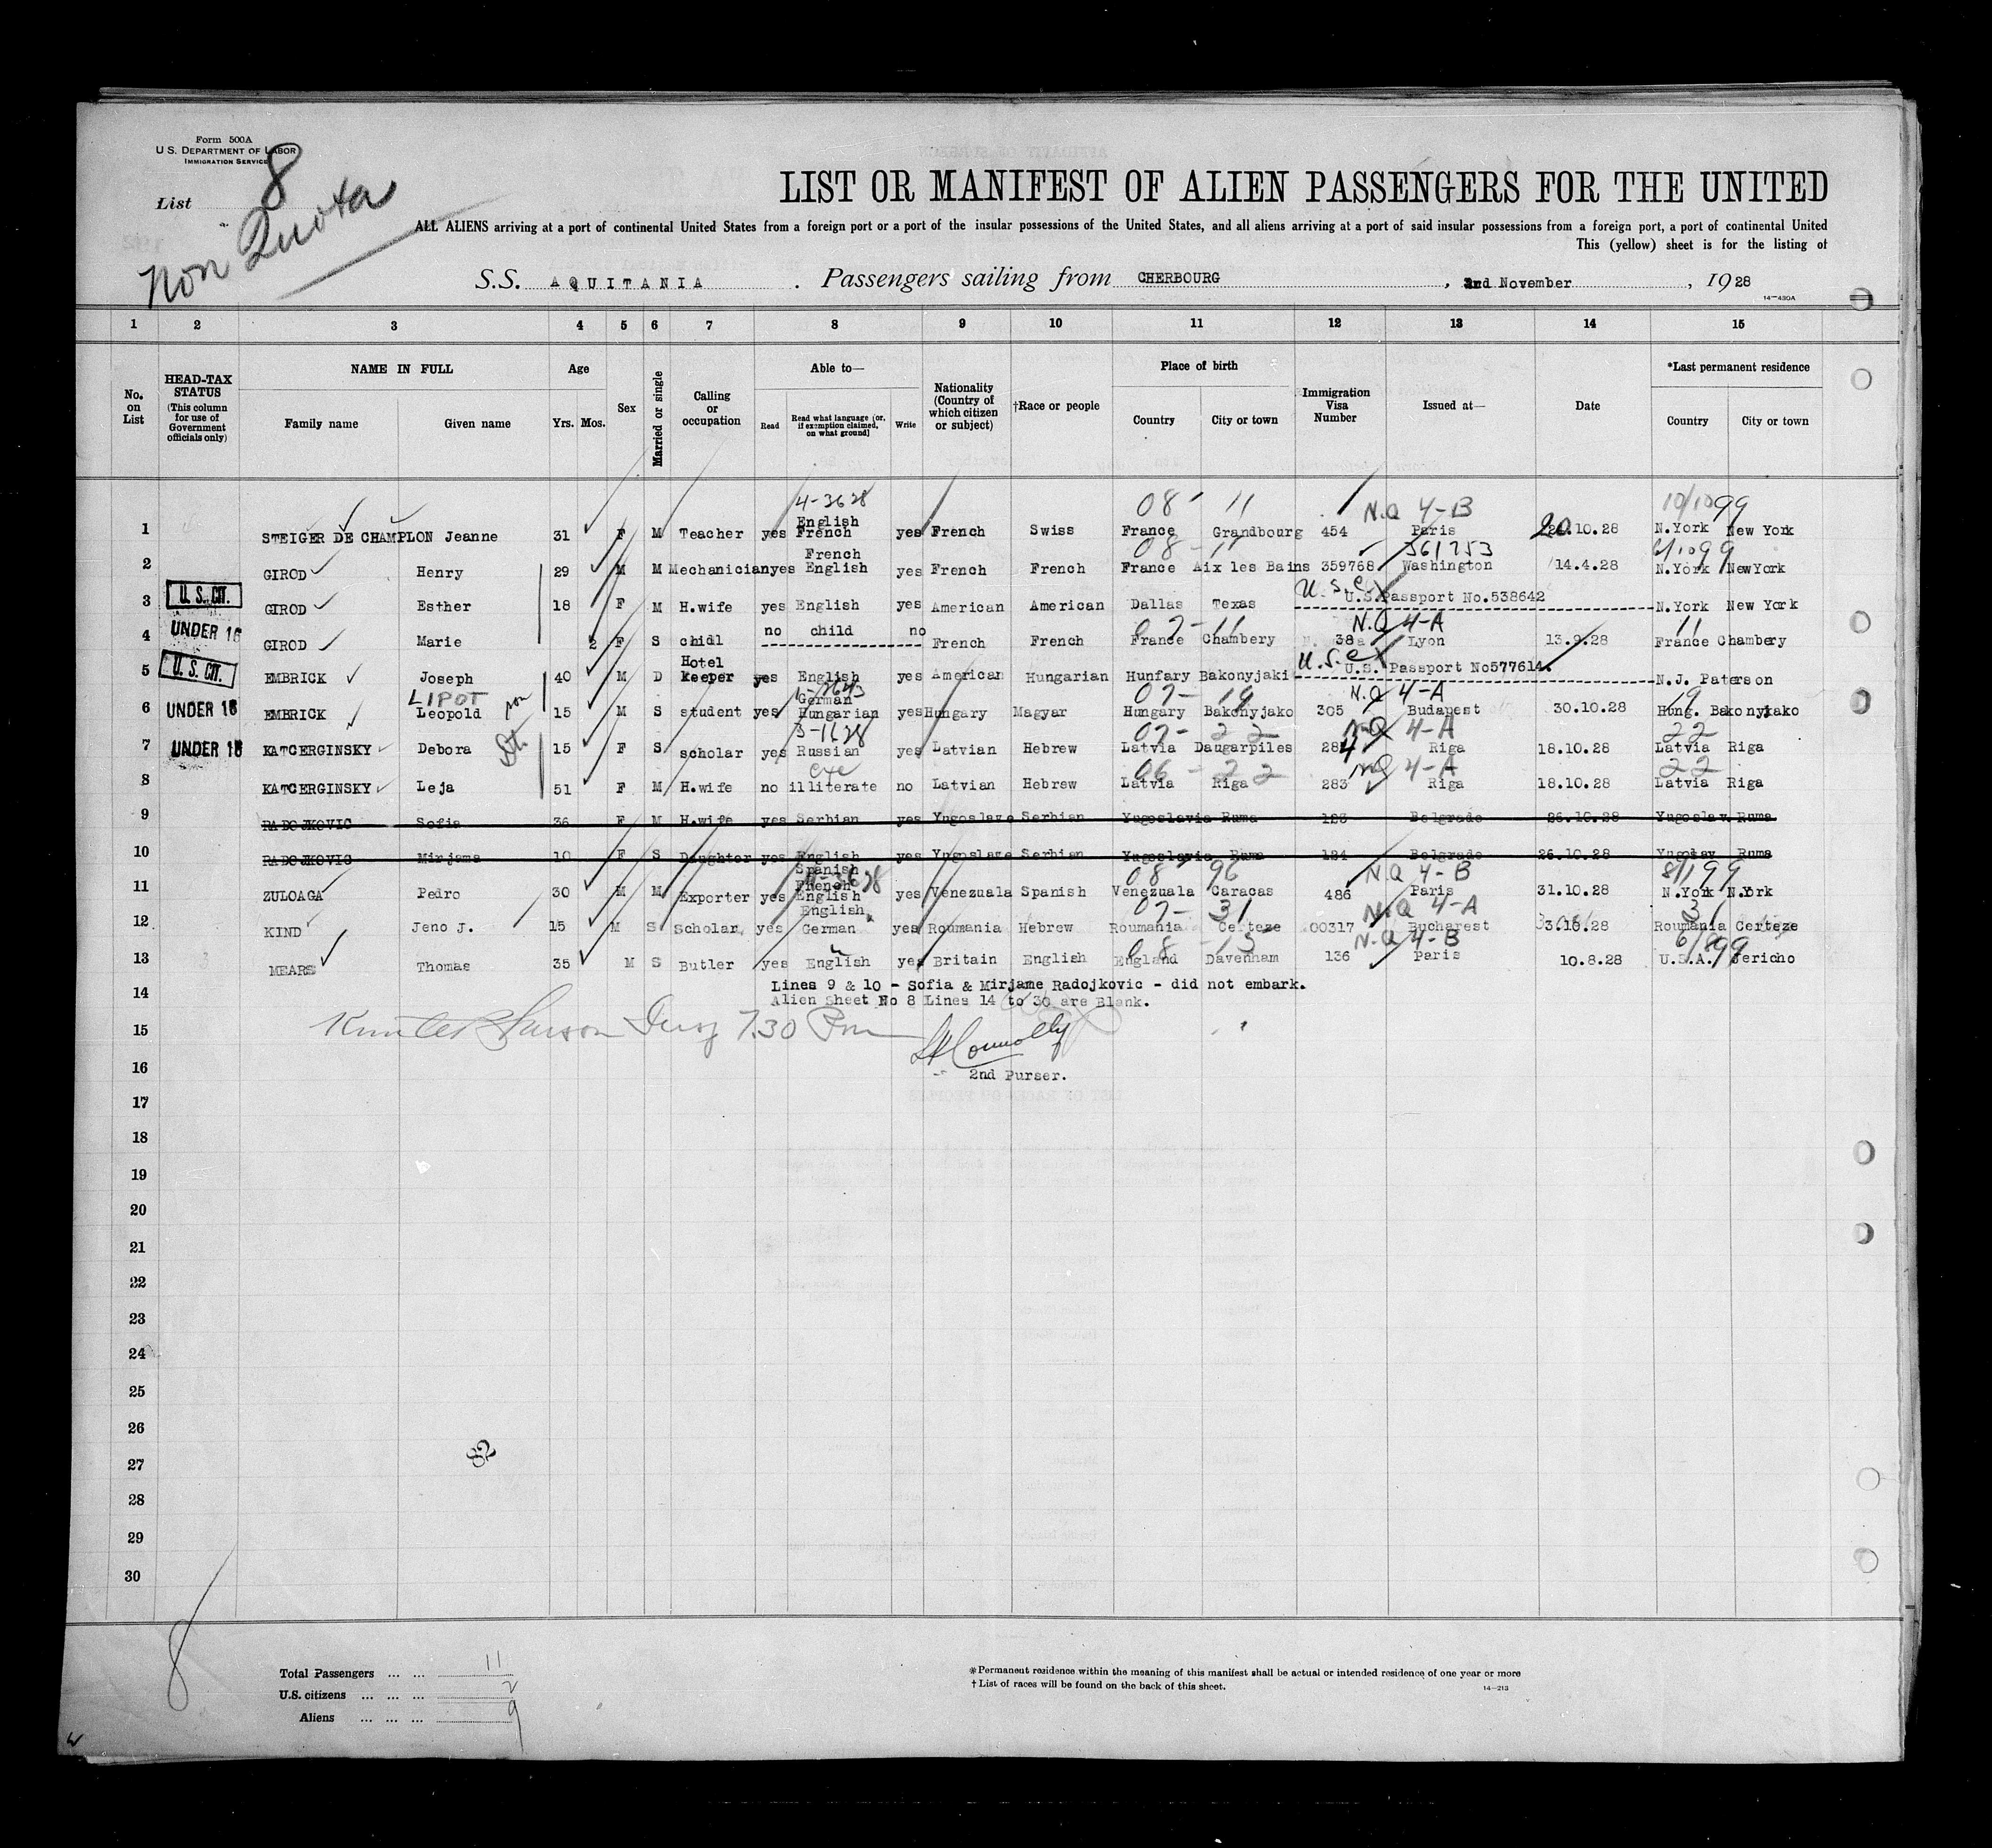 Form 500A
U. S. DEPARTMENT OF LABOR
IMMIGRATION SERVICE
List 8
Non Quota
LIST OR MANIFEST OF ALIEN PASSENGERS FOR THE UNITED
ALL ALIENS arriving at a port of continental United States from a foreign port or a port of the insular possessions of the United States, and all aliens arriving at a port of said insular possessions from a foreign port, a port of continental United
This (yellow) sheet is for the listing of
S.S. AQUITANIA . Passengers sailing from CHERBOURG , 2nd November , 19 28
14—430A
1 2 3 4 5 6 7 8 9 10 11 12 13 14 15
No. on List
HEAD-TAX STATUS (This column for use of Government officials only)
NAME IN FULL Family name Given name
Age Yrs. Mos.
Sex
Married or single
Calling or occupation
Able to— Read Read what language [or, if exemption claimed, on what ground] Write
Nationality (Country of which citizen or subject)
†Race or people
Place of birth Country City or town
Immigration Visa Number
Issued at—
Date
*Last permanent residence Country City or town
4-3628 08 - 11 N.Q 4-B 10/10 99
1 STEIGER DE CHAMPLON Jeanne 31 F M Teacher yes English French yes French Swiss France Grandbourg 454 Paris 20.10.28 N.York New York
08 - 11 361253 99
2 GIROD Henry 29 M M Mechanician yes French English yes French French France Aix les Bains 359768 Washington 14.4.28 N.York NewYork
U. S. CIT. U.S.C
3 GIROD Esther 18 F M H.wife yes English yes American American Dallas Texas U.S.Passport No.538642 N.York New York
UNDER 16 07 - 11 N.Q 4-A 11
4 GIROD Marie 2 F S chidl no child no French French France Chambery 38 Lyon 13.9.28 France Chambery
U. S. CIT. U.S.C
5 EMBRICK Joseph 40 M D Hotel keeper yes English yes American Hungarian Hunfary Bakonyjaki U.S. Passport No577614. N.J. Paterson
LIPOT 07 - 19 N.Q 4-A 19
UNDER 16
6 EMBRICK Leopold 15 M S student yes German Hungarian yes Hungary Magyar Hungary Bakonyjako 305 Budapest 30.10.28 Hung. Bakonyjako
3-1628 07 - 22 N.Q 4-A 22
UNDER 16
7 KATCERGINSKY Debora 15 F S scholar yes Russian yes Latvian Hebrew Latvia Daugarpiles 284 Riga 18.10.28 Latvia Riga
06 - 22 NQ 4-A 22
8 KATCERGINSKY Leja 51 F M H.wife no illiterate no Latvian Hebrew Latvia Riga 283 Riga 18.10.28 Latvia Riga
9 RADOJKOVIC Sofia 36 F M H.wife yes Serbian yes Yugoslave Serbian Yugoslavia Ruma 123 Belgrade 26.10.28 Yugoslav Ruma
10 RADOJKOVIC Mirjame 10 F S Daughter yes English yes Yugoslave Serbian Yugoslavia Ruma 124 Belgrade 26.10.28 Yugoslav Ruma
08 96 N.Q 4-B 99
11 ZULOAGA Pedro 30 M M Exporter yes Spanish French English yes Venezuala Spanish Venezuala Caracas 486 Paris 31.10.28 N.York N.York
07 - 31 N.Q 4-A 31
12 KIND Jeno J. 15 M S Scholar yes English German yes Roumania Hebrew Roumania Certeze 00317 Bucharest 3.10.28 Roumania Certeze
08 - 13 N.Q 4-B 99
13 MEARS Thomas 35 M S Butler yes English yes Britain English England Davenham 136 Paris 10.8.28 U.S.A. Jericho
Lines 9 & 10 - Sofia & Mirjame Radojkovic - did not embark.
14
Alien Sheet No 8 Lines 14 to 30 are Blank.
15 7.30 Pm Connolly
16 2nd Purser.
17
18
19
20
21
22
23
24
25
26
27
28
29
30
82
8
Total Passengers ... ... 11
U.S. citizens ... ... ... 2
Aliens ... ... ... 9
*Permanent residence within the meaning of this manifest shall be actual or intended residence of one year or more
†List of races will be found on the back of this sheet.
14—213